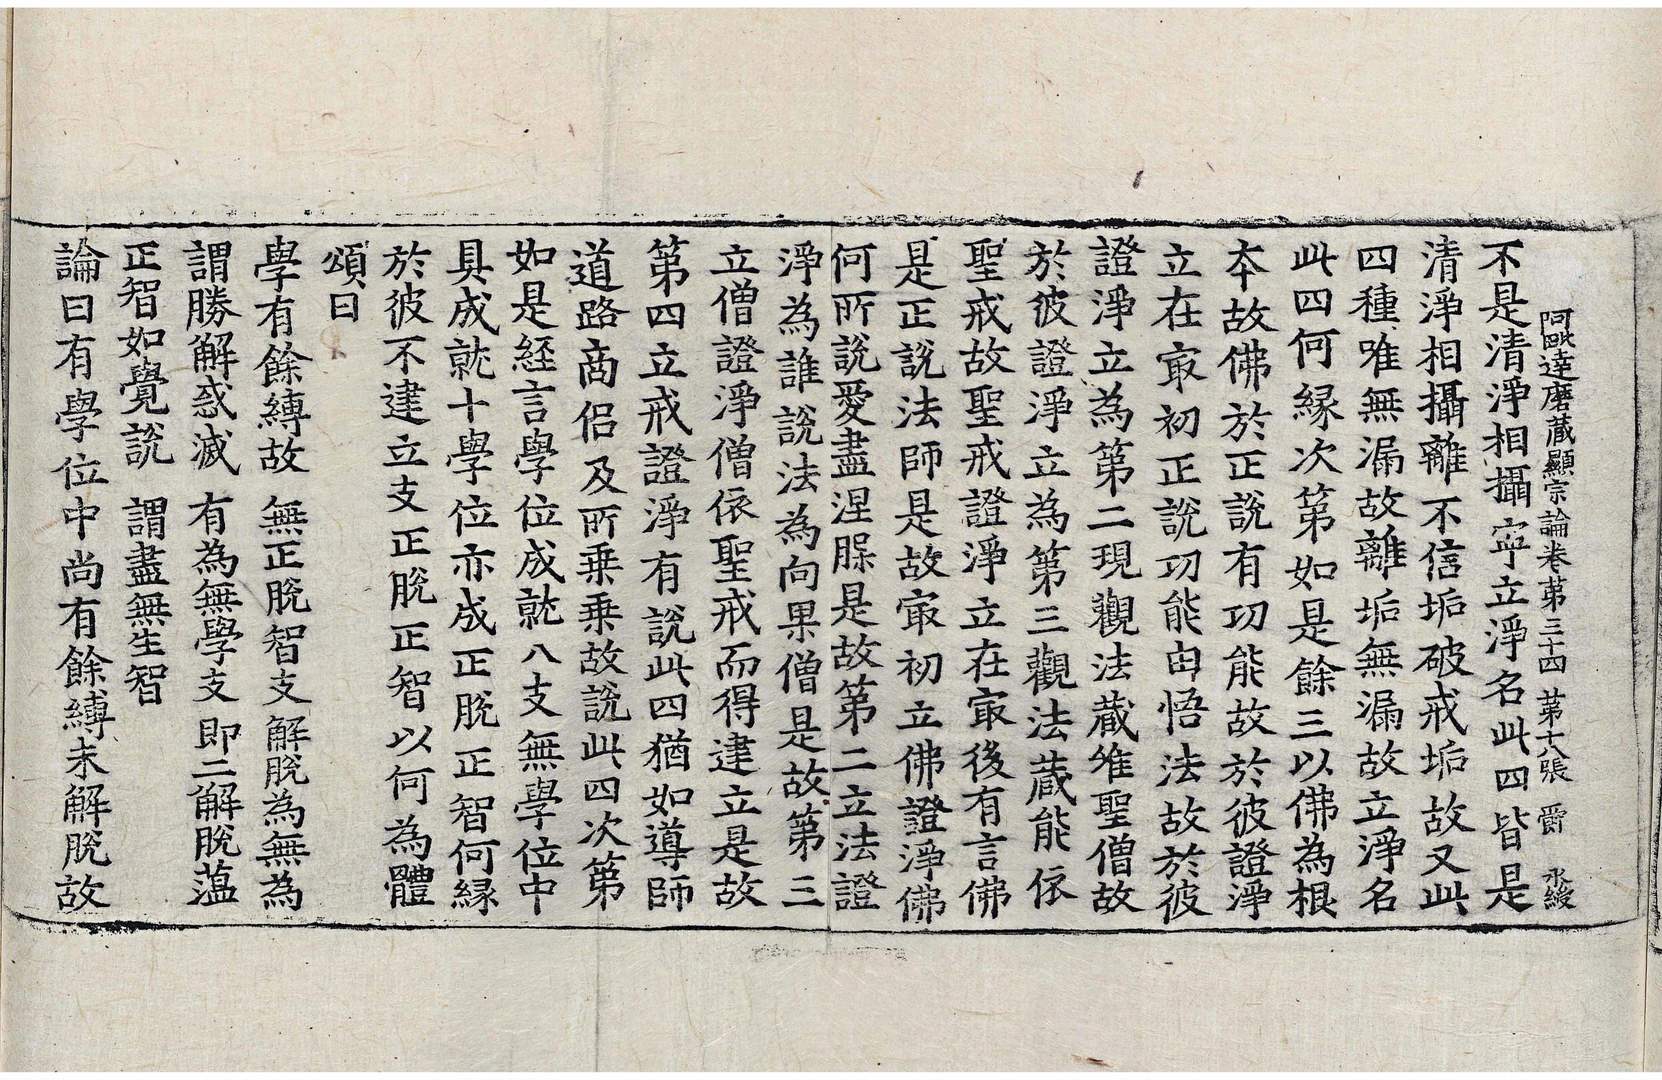 阿毗達磨藏顯宗論卷第三十四 第十八張 爵 永綏
不是清淨相攝寧立淨名此四皆是
清淨相攝離不信垢破戒垢故又此
四種唯無漏故離垢無漏故立淨名
此四何緣次第如是餘三以佛為根
本故佛於正說有功能故於彼證淨
立在㝡初正說功能由悟法故於彼
證淨立為第二現觀法藏唯聖僧故
於彼證淨立為第三觀法藏能依
聖戒故聖戒證淨立在㝡後有言佛
是正說法師是故㝡初立佛證淨佛
何所說愛盡涅槃是故第二立法證
淨為誰說法為向果僧是故第三
立僧證淨僧依聖戒而得建立是故
第四立戒證淨有說此四猶如導師
道路商侶及所乘乘故說此四次第
如是經言學位成就八支無學位中
具成就十學位亦成正脫正智何緣
於彼不建立支正脫正智以何為體
頌曰
學有餘縛故 無正脫智支解脫為無為
謂勝解惑滅 有為無學支 即二解脫蘊
正智如覺說 謂盡無生智
論曰有學位中尚有餘縛未解脫故